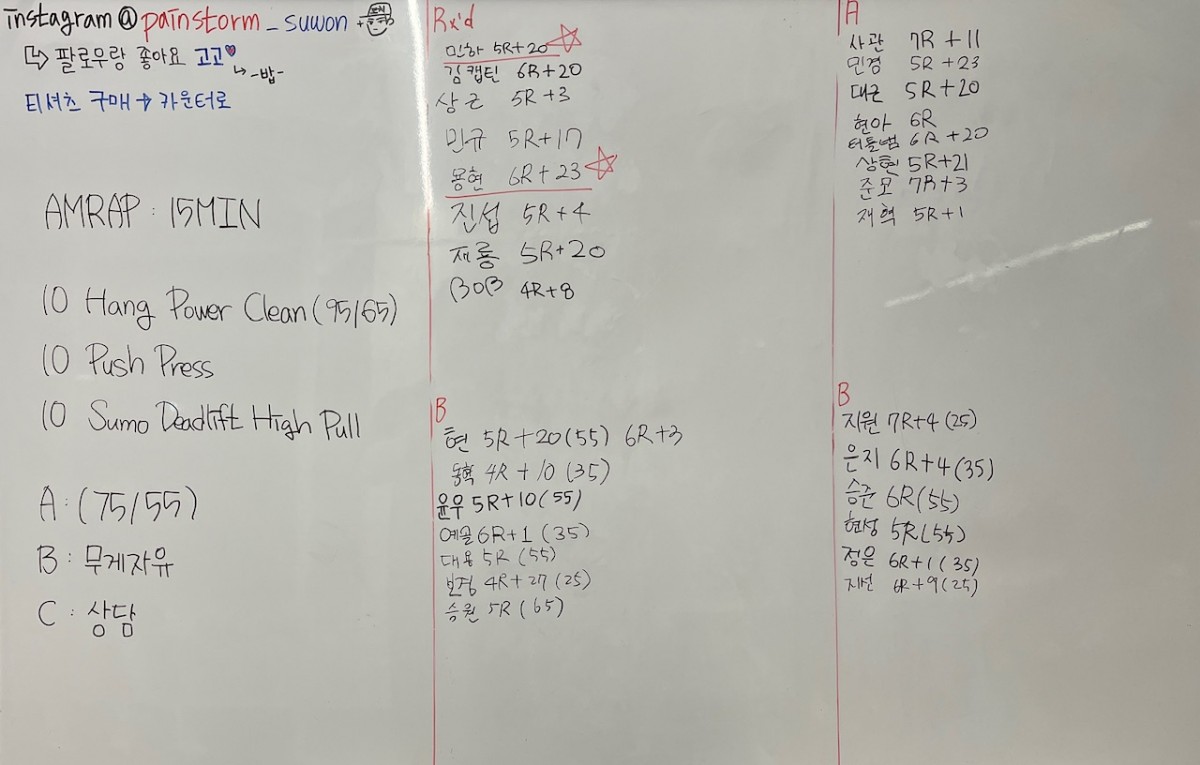 instagram @ painstorm _ suwon +
↳ 팔로우랑 좋아요 고고♥
↳ -밥-
티셔츠 구매 → 카운터로
AMRAP : 15MIN
10 Hang Power Clean (95/65)
10 Push Press
10 Sumo Deadlift High Pull
A : (75/55)
B : 무게자유
C : 상담
Rx'd
민하 5R+20 ☆
김캡틴 6R+20
상근 5R+3
민규 5R+17
용현 6R+23 ☆
진섭 5R+4
재룡 5R+20
BOB 4R+8
B
현 5R+20(55) 6R+3
동혁 4R+10(35)
윤우 5R+10(55)
예솔 6R+1(35)
대용 5R(55)
보경 4R+27(25)
승원 5R(65)
A
사관 7R+11
민경 5R+23
대근 5R+20
현아 6R
터틀뱀 6R+20
상현 5R+21
준모 7R+3
재혁 5R+1
B
지원 7R+4(25)
은지 6R+4(35)
승준 6R(55)
현성 5R(55)
정은 6R+1(35)
지선 6R+9(25)